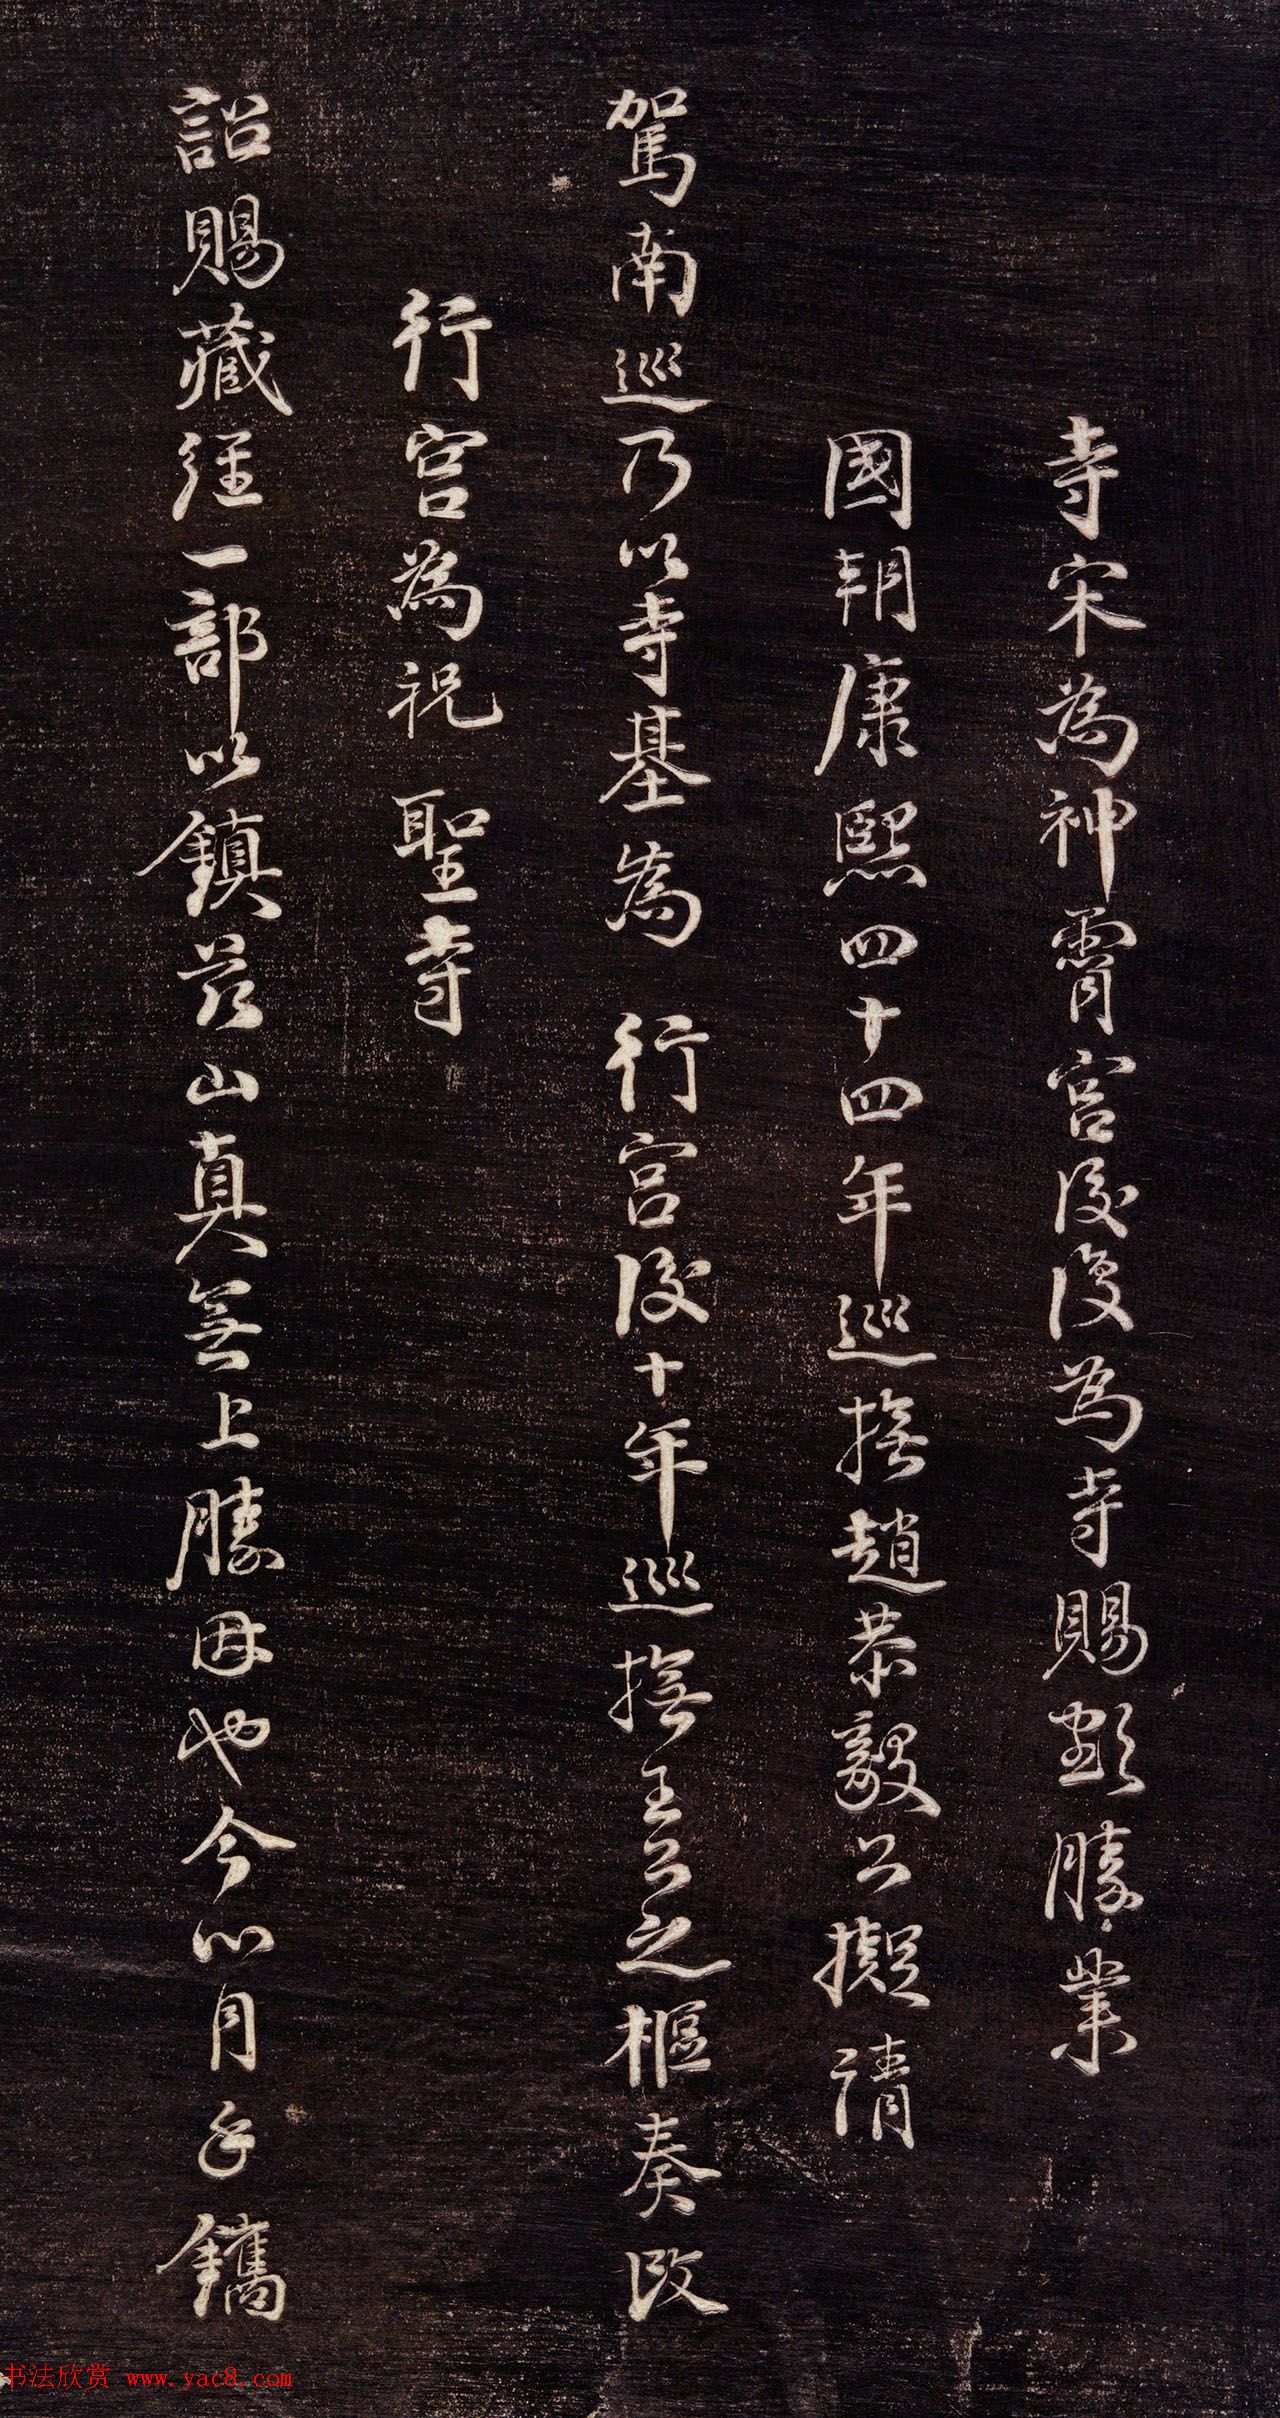 寺宋為神霄宮後復為寺賜額勝業
國朝康熙四十四年巡撫趙恭毅公擬請
駕南巡乃以寺基為 行宮後十年巡撫王公之樞奏改
行宮為祝 聖寺
詔賜藏經一部以鎮茲山真無上勝因也今心月上鐫
书法欣赏 www.yac8.com